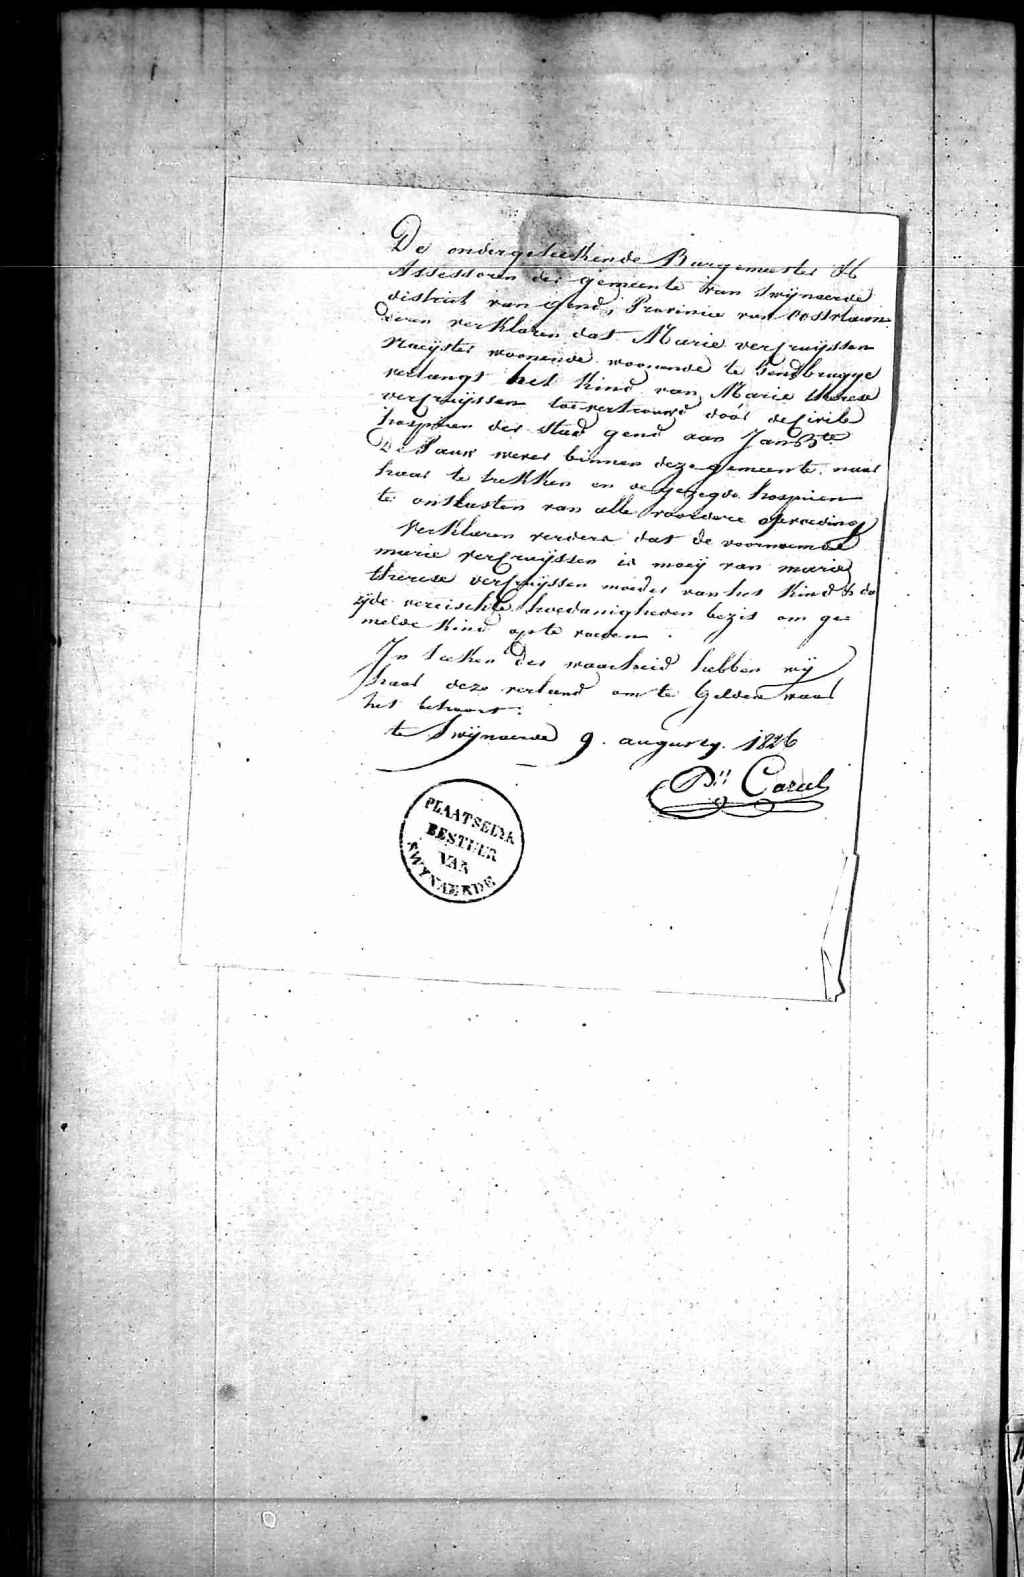 De ondergeteekende Burgemeester &
Assessoren der gemeente van Swijnaerde
district van gend, Provincie van oostvlaen
deren verklaren dat Marie vercruijssen
Naeijster woonende woonende te Gendbrugge
verlangt het kind van Marie therese
vercruijssen toevertrouwd door de Civile
hospicien der stad gend aan Jan Bte
De Pauw wever binnen deze gemeente, naer
haer te trekken en de gezegde hospicien
te ontlasten van alle voordere opvoeding
Verklaren verders dat de voornoemde
marie vercruijssen is moeij van marie
therese vercruijssen moeder van het kind & de
vereischte hoedanigheden bezit om ge
melde kind op te voeden.
In teeken der waerheid hebben wij
haer deze verleend om te gelden waer
het behoort.
te Swijnaerde 9. augusty. 1826
PLAATSELYK
BESTUER
VAN
SWYNAERDE